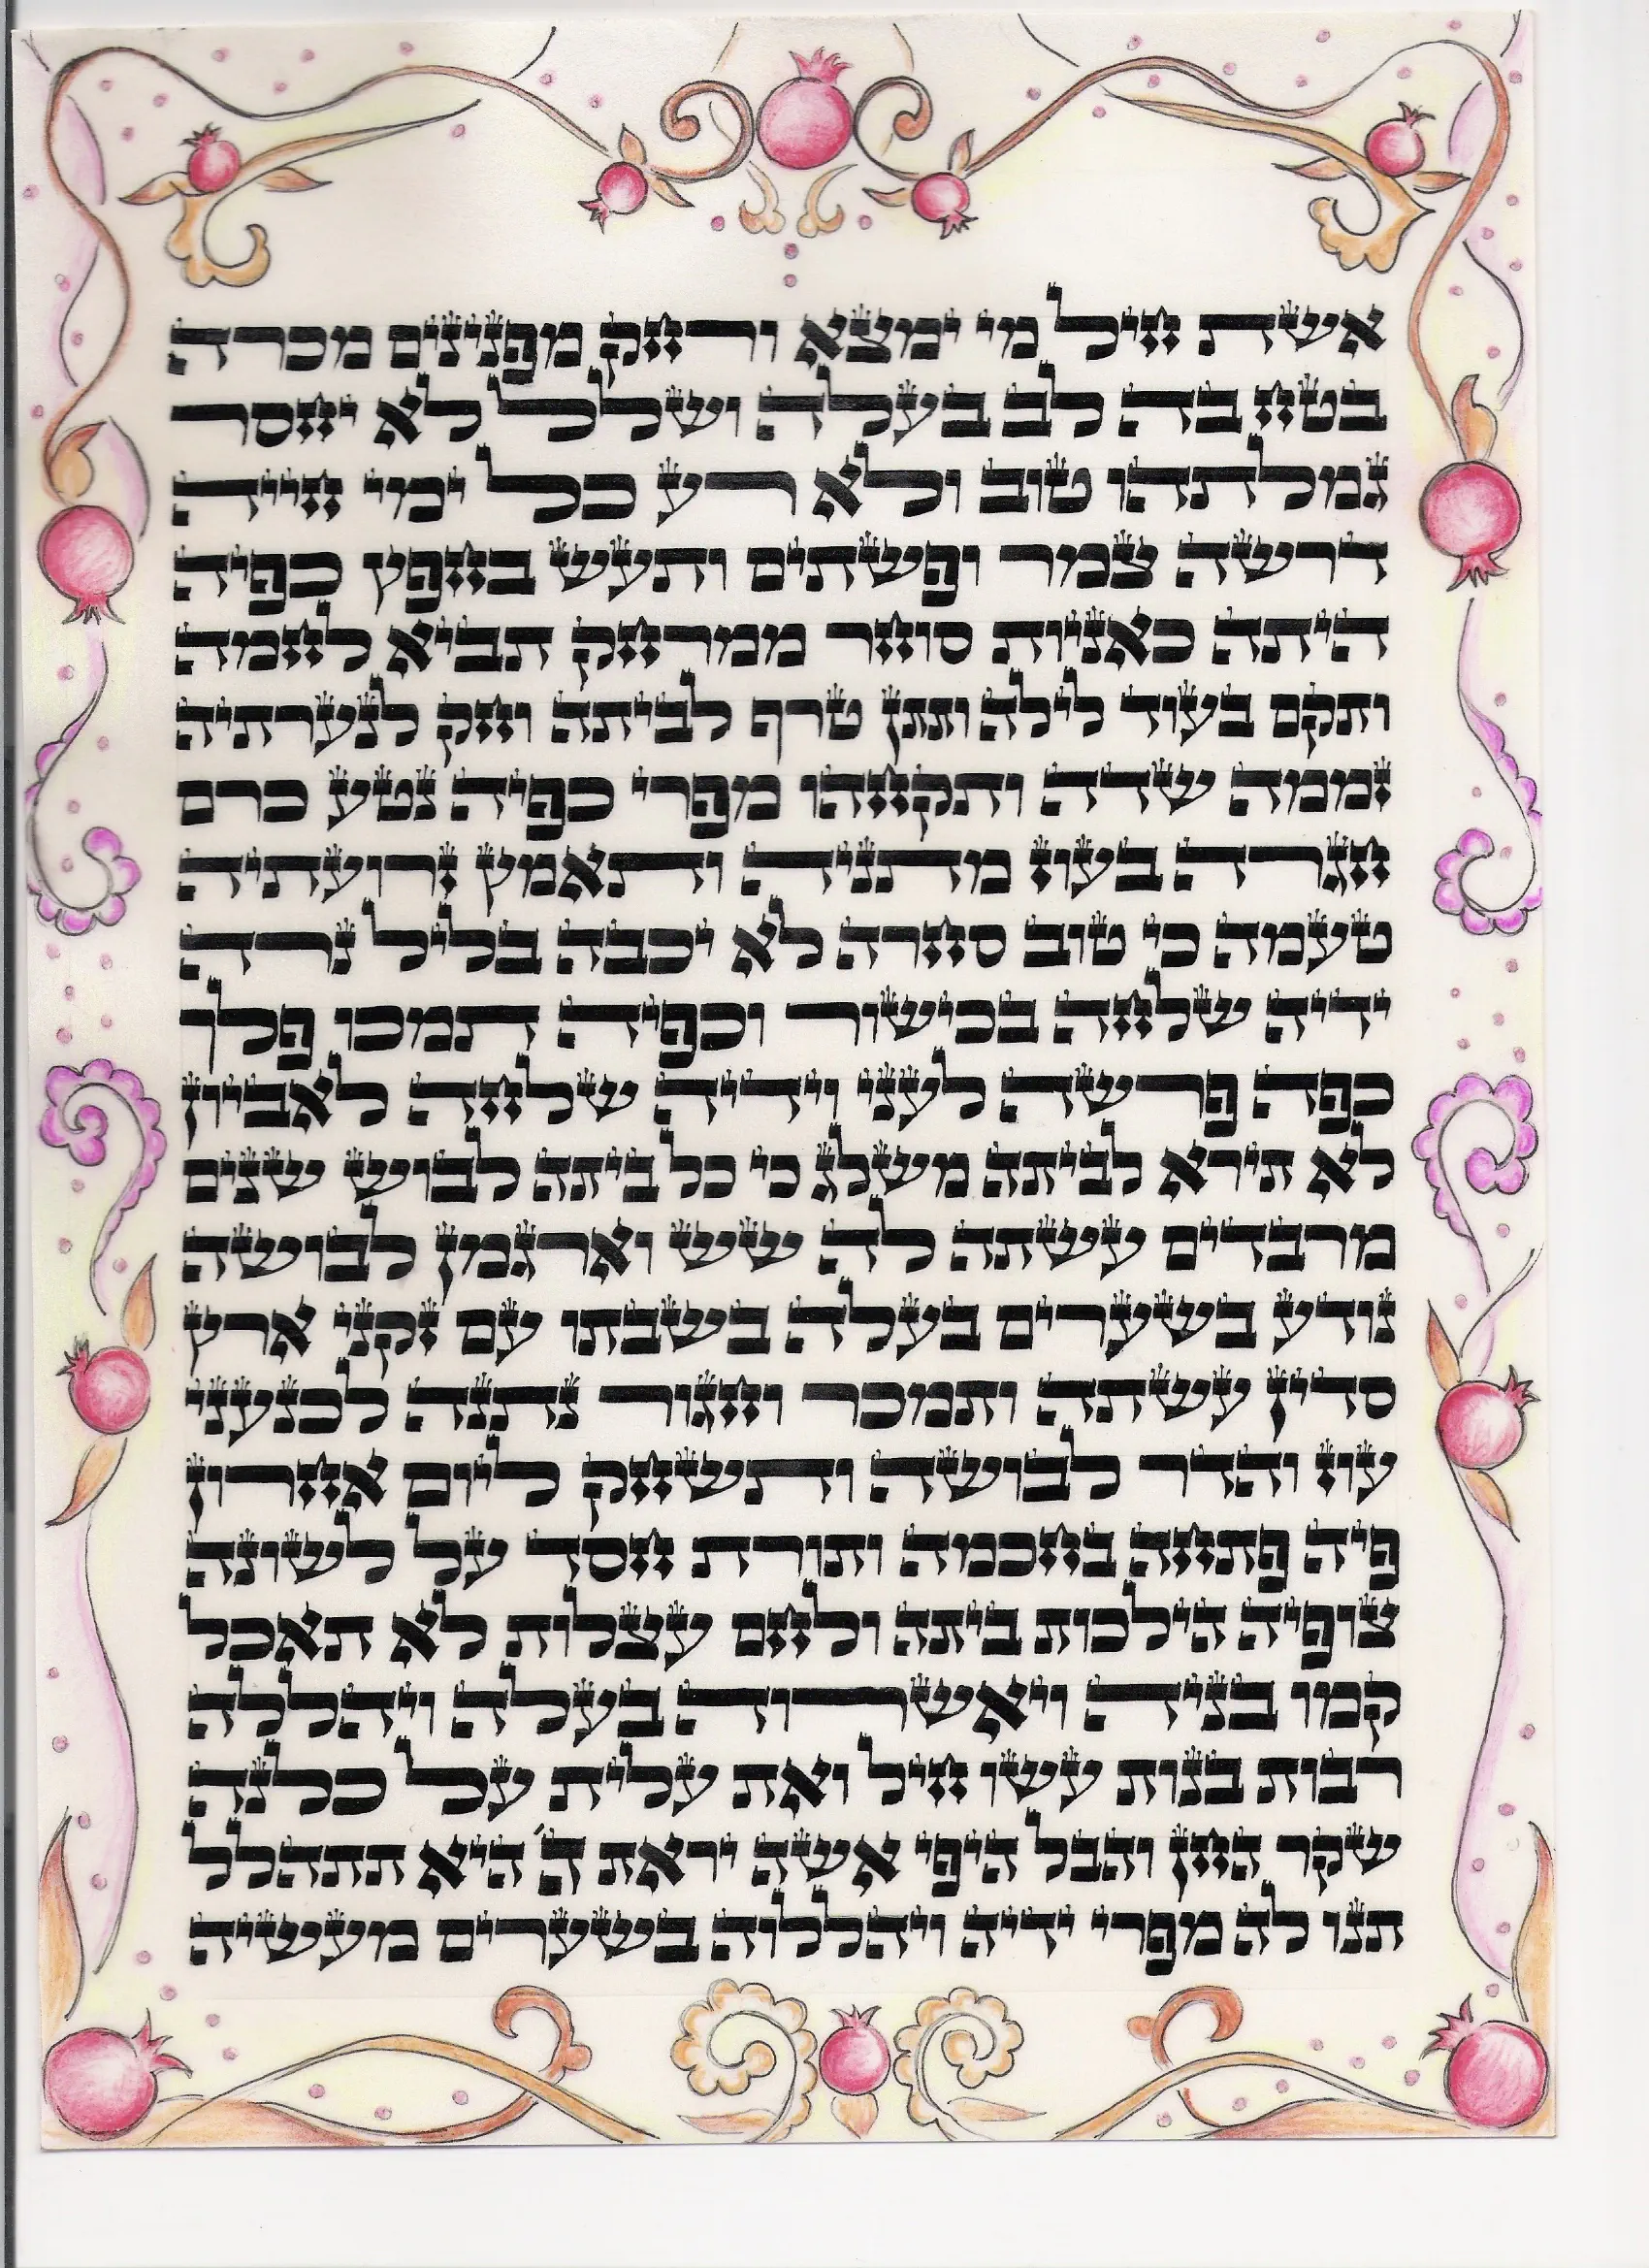 אשת חיל מי ימצא ורחק מפנינים מכרה
בטח בה לב בעלה ושלל לא יחסר
גמלתהו טוב ולא רע כל ימי חייה
דרשה צמר ופשתים ותעש בחפץ כפיה
היתה כאניות סוחר ממרחק תביא לחמה
ותקם בעוד לילה ותתן טרף לביתה וחק לנערתיה
זממה שדה ותקחהו מפרי כפיה נטע כרם
חגרה בעוז מתניה ותאמץ זרועתיה
טעמה כי טוב סחרה לא יכבה בליל נרה
ידיה שלחה בכישור וכפיה תמכו פלך
כפה פרשה לעני וידיה שלחה לאביון
לא תירא לביתה משלג כי כל ביתה לבוש שנים
מרבדים עשתה לה שש וארגמן לבושה
נודע בשערים בעלה בשבתו עם זקני ארץ
סדין עשתה ותמכר וחגור נתנה לכנעני
עוז והדר לבושה ותשחק ליום אחרון
פיה פתחה בחכמה ותורת חסד על לשונה
צופיה הילכות ביתה ולחם עצלות לא תאכל
קמו בניה ויאשרוה בעלה ויהללה
רבות בנות עשו חיל ואת עלית על כלנה
שקר החן והבל היפי אשה יראת ה' היא תתהלל
תנו לה מפרי ידיה ויהללוה בשערים מעשיה